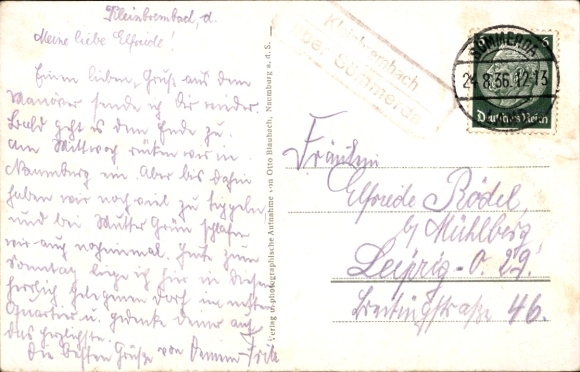 Kleinbrembach, d.
Meine liebe Elfriede!
Einen lieben Gruß aus dem
Manöver sende ich Dir wieder.
Bald geht es dem Ende zu.
Am Mittwoch rücken wir in
Naumburg ein. Aber bis dahin
haben wir noch viel zu tippeln,
und bei Mutter Grün schlafen
wir auch nocheinmal. Heute zum
Sonntag liege ich hier in diesem
herrlich gelegenen Dorf im
Quartier u. gedenke Deiner auf
das herzlichste.
Die besten Grüße von Deinem
Verlag u. photographische Aufnahme von Otto Blaubach, Naumburg a. d. S.
Kleinbrembach
über Sömmerda
SÖMMERDA
8.36.12-13
6
Deutsches Reich
Fräulein
Elfriede Rödel
b/ Mühlberg
Leipzig-O. 29.
Breitingstraße 46.